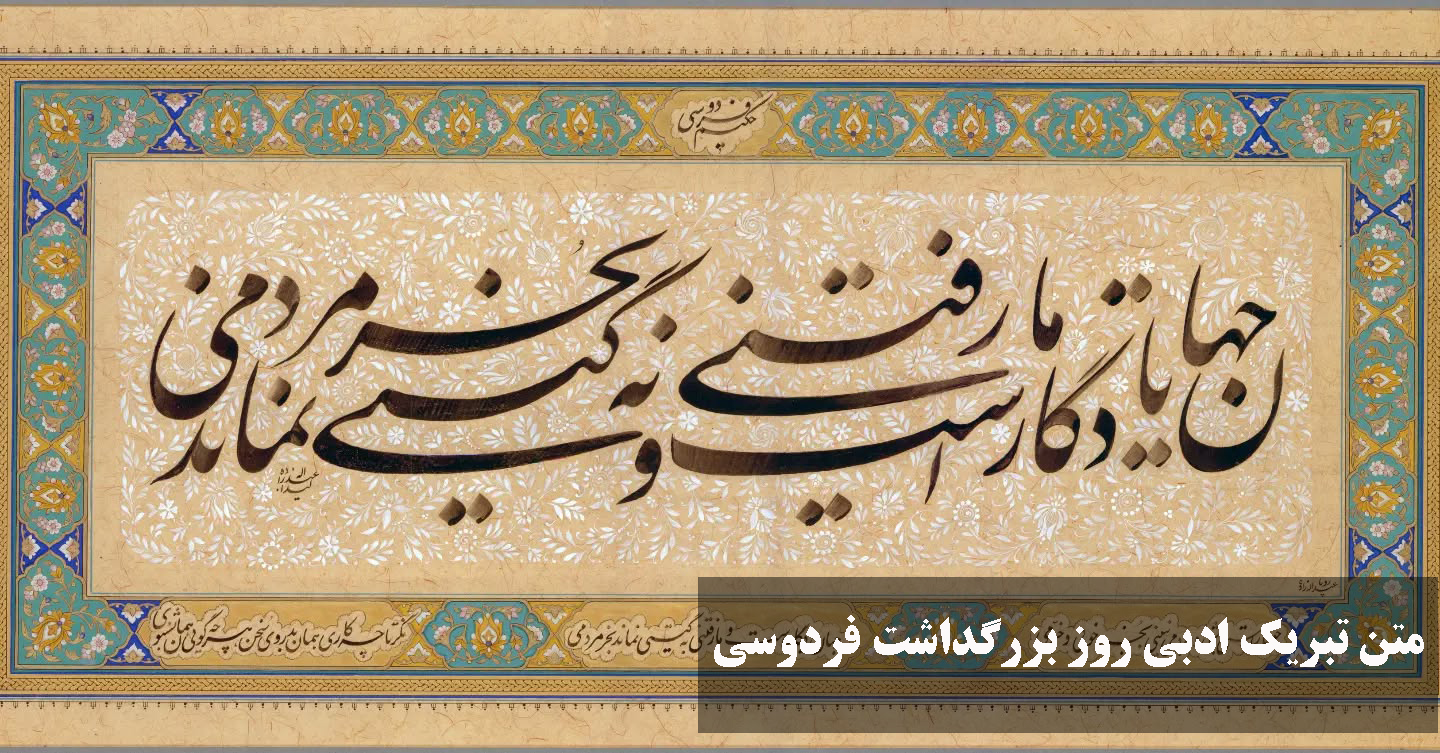 حکیم فردوسی
جهان یادگار است و ما رفتنی
به گیتی نماند بجز مردمی
و ما رفتنی به گیتی نماند بجز مردمی
نگر تا چه کاری همان بدروی سخن هر چه گویی همان بشنوی
متن تبریک ادبی روز بزرگداشت فردوسی